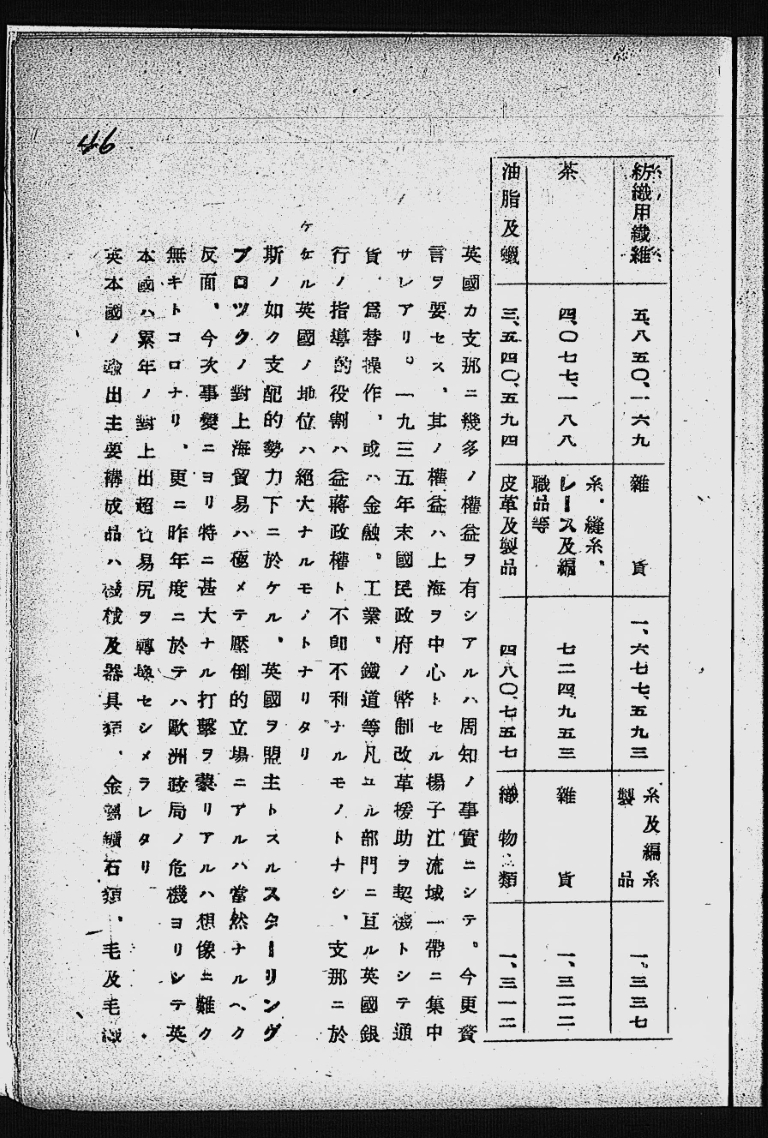 46
紡織用纖維　五、八五〇、一六九　雜貨　一、六七七、五九三　糸及編糸製品　一、三三七
茶　四、〇七七、一八八　糸、縫糸、レース及編職品等　七二四、九五三　雜貨　一、三二二
油脂及蠟　三、五四〇、五九四　皮革及製品　四八〇、七五七　織物類　一、三一二
英國カ支那ニ幾多ノ權益ヲ有シアルハ周知ノ事實ニシテ、今更贅
言ヲ要セス、其ノ權益ハ上海ヲ中心トセル揚子江流域一帶ニ集中
サレアリ。一九三五年末國民政府ノ幣制改革援助ヲ契機トシテ通
貨、爲替操作、或ハ金融、工業、鐵道等凡ユル部門ニ亘ル英國銀
行ノ指導的役割ハ益蔣政權ト不卽不利ナルモノトナシ、支那ニ於
ケル英國ノ地位ハ絕大ナルモノトナリタリ
斯ノ如ク支配的勢力下ニ於ケル、英國ヲ盟主トスルスターリング
ブロツクノ對上海貿易ハ極メテ壓倒的立場ニアルハ當然ナルヘク
反面、今次事變ニヨリ特ニ甚大ナル打擊ヲ蒙リアルハ想像ニ難ク
無キトコロナリ、更ニ昨年度ニ於テハ歐洲政局ノ危機ヨリシテ英
本國ハ累年ノ對上出超貿易尻ヲ轉換セシメラレタリ
英本國ノ輸出主要構成品ハ機械及器具類、金屬鑛石類、毛及毛織